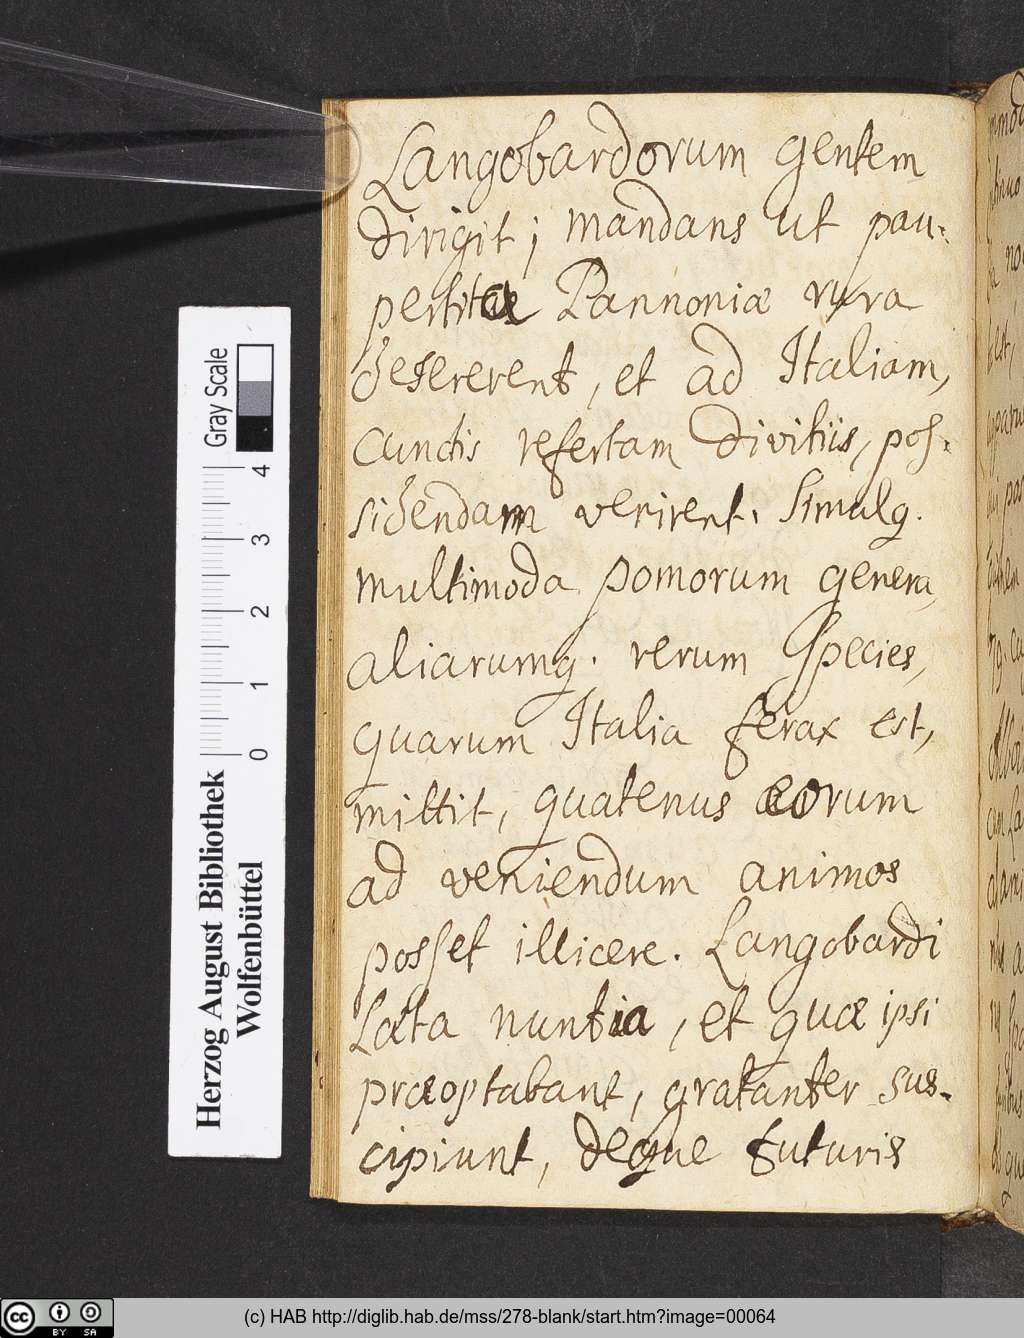 Langobardorum gentem
dirigit; mandans ut pau-
pertina Pannoniæ rura
desererent, et ad Italiam,
cunctis refertam divitiis, pos-
sidendam venirent. Simulq.
multimoda pomorum genera,
aliarumq. rerum species,
quarum Italia ferax est,
mittit, quatenus eorum
ad veniendum animos
posset illicere. Langobardi
læta nuntia, et quæ ipsi
præoptabant, gratanter sus-
cipiunt, deque futuris
Gray Scale
4
3
2
1
0
Herzog August Bibliothek
Wolfenbüttel
cc BY SA
(c) HAB http://diglib.hab.de/mss/278-blank/start.htm?image=00064